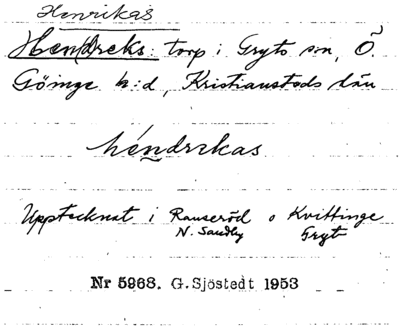 Henrikas
Hendreks: torp i Gryts sn, Ö.
Göinge h:d, Kristianstads län
héndrekas
Upptecknat i Rauseröd o Kvittinge
N. Sandby Gryt
Nr 5968. G. Sjöstedt 1953